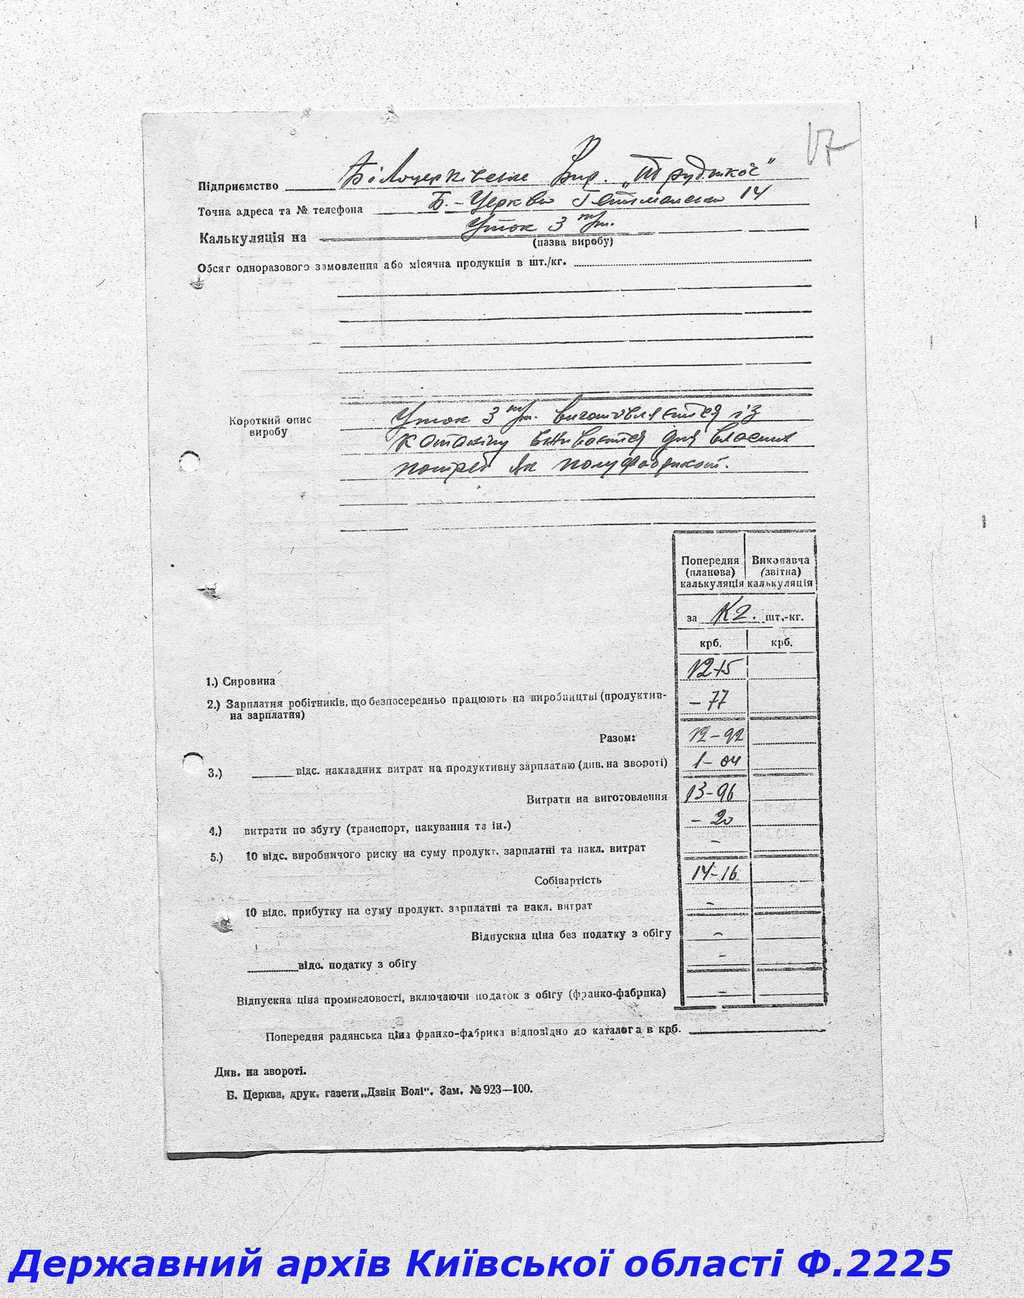 17
Підприємство Білоцерківське Вир. „Трудикой"
Точна адреса та № телефона Б.-Церква Гетьманська 14
Калькуляція на Уток 3
(назва виробу)
Обсяг одноразового замовлення або місячна продукція в шт./кг.
Короткий опис виробу
Уток 3 виготовляється із
вживається для власних
потреб як полуфабрикат.
Попередня (планова) калькуляція
Виконавча (звітна) калькуляція
за Кг. шт.-кг.
крб. крб.
1.) Сировина 12-15
2.) Зарплатня робітників, що безпосередньо працюють на виробництві (продуктив-
на зарплатня) – 77
Разом: 12-92
3.) відс. накладних витрат на продуктивну зарплатню (див. на звороті) 1-04
Витрати на виготовлення 13-96
4.) витрати по збуту (транспорт, пакування та ін.) – 20
5.) 10 відс. виробничого риску на суму продукт. зарплатні та накл. витрат –
Собівартість 14-16
10 відс. прибутку на суму продукт. зарплатні та накл. витрат –
Відпускна ціна без податку з обігу –
відс. податку з обігу –
Відпускна ціна промисловості, включаючи податок з обігу (франко-фабрика) –
Попередня радянська ціна франко-фабрика відповідно до каталога в крб.
Див. на звороті.
Б. Церква, друк. газети „Дзвін Волі". Зам. № 923—100.
Державний архів Київської області Ф.2225